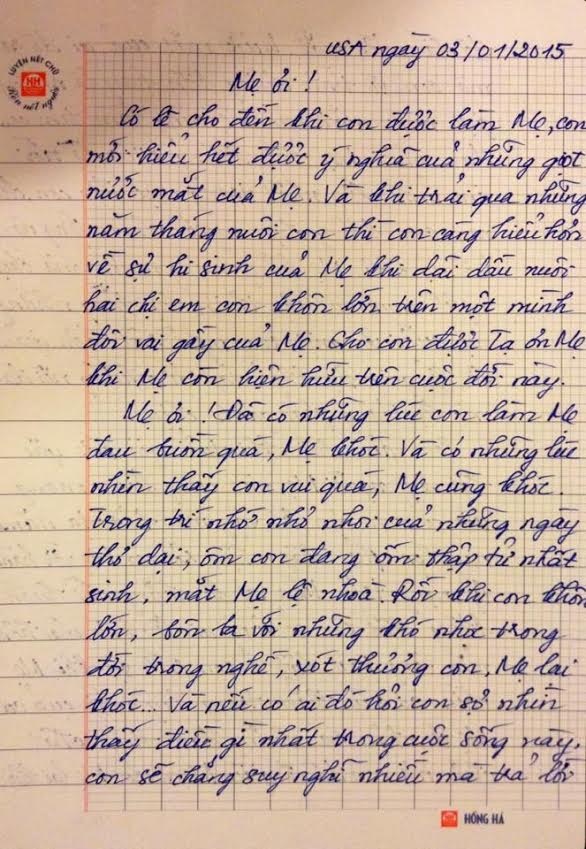 USA ngày 03/01/2015
LUYỆN NÉT CHỮ
HH
Rèn nết người
Mẹ ơi !
Có lẽ cho đến khi con được làm Mẹ, con
mới hiểu hết được ý nghĩa của những giọt
nước mắt của Mẹ. Và khi trải qua những
năm tháng nuôi con thì con càng hiểu hơn
về sự hi sinh của Mẹ khi dãi dầu nuôi
hai chị em con khôn lớn trên một mình
đôi vai gầy của Mẹ. Cho con được Tạ ơn Mẹ
khi Mẹ còn hiện hữu trên cuộc đời này.
Mẹ ơi ! Đã có những lúc con làm Mẹ
đau buồn quá, Mẹ khóc. Và có những lúc
nhìn thấy con vui quá, Mẹ cũng khóc.
Trong trí nhớ nhỏ nhoi của những ngày
thơ dại, ôm con đang ốm thập tử nhất
sinh, mắt Mẹ lệ nhoà. Rồi khi con khôn
lớn, bôn ba với những khó nhọc trong
đời trong nghề, xót thương con, Mẹ lại
khóc... Và nếu có ai đó hỏi con sợ nhìn
thấy điều gì nhất trong cuộc sống này,
con sẽ chẳng suy nghĩ nhiều mà trả lời
HỒNG HÀ